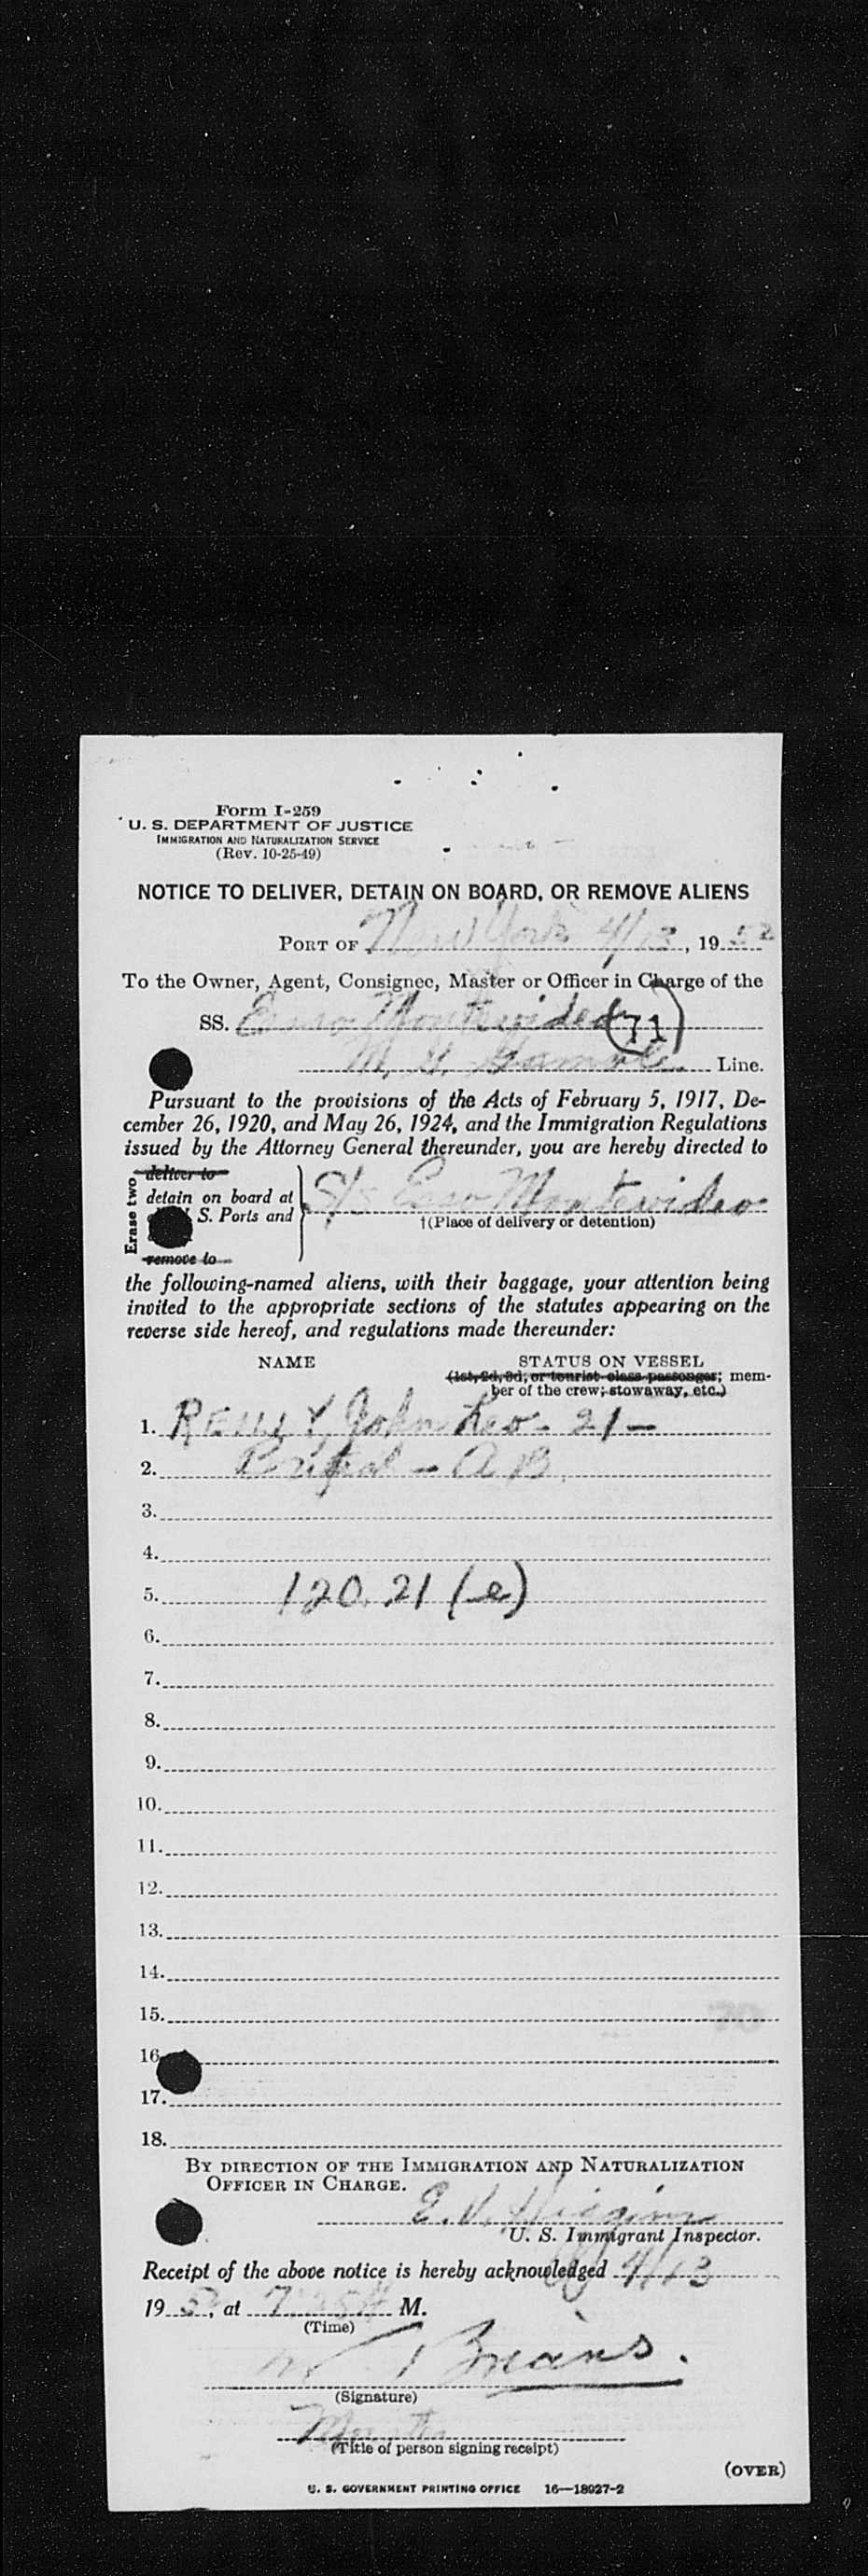 Form I-259
U. S. DEPARTMENT OF JUSTICE
IMMIGRATION AND NATURALIZATION SERVICE
(Rev. 10-25-49)
NOTICE TO DELIVER, DETAIN ON BOARD, OR REMOVE ALIENS
PORT OF New York 4/13, 1952
To the Owner, Agent, Consignee, Master or Officer in Charge of the
SS. Esso Montevideo (71)
Line.
Pursuant to the provisions of the Acts of February 5, 1917, De-
cember 26, 1920, and May 26, 1924, and the Immigration Regulations
issued by the Attorney General thereunder, you are hereby directed to
Erase two
deliver to
detain on board at
S. Ports and
remove to
S/S Esso Montevideo
†(Place of delivery or detention)
the following-named aliens, with their baggage, your attention being
invited to the appropriate sections of the statutes appearing on the
reverse side hereof, and regulations made thereunder:
NAME STATUS ON VESSEL
(1st, 2d, 3d, or tourist class passenger; mem-
ber of the crew; stowaway, etc.)
1. REILLY, John Leo - 21 -
2. British - AB.
3.
4.
5. 120.21 (e)
6.
7.
8.
9.
10.
11.
12.
13.
14.
15.
16.
17.
18.
BY DIRECTION OF THE IMMIGRATION AND NATURALIZATION
OFFICER IN CHARGE.
E. V. Higgins
U. S. Immigrant Inspector.
Receipt of the above notice is hereby acknowledged 4/13
1952, at M.
(Time)
(Signature)
(Title of person signing receipt)
(OVER)
U. S. GOVERNMENT PRINTING OFFICE 16—18927-2